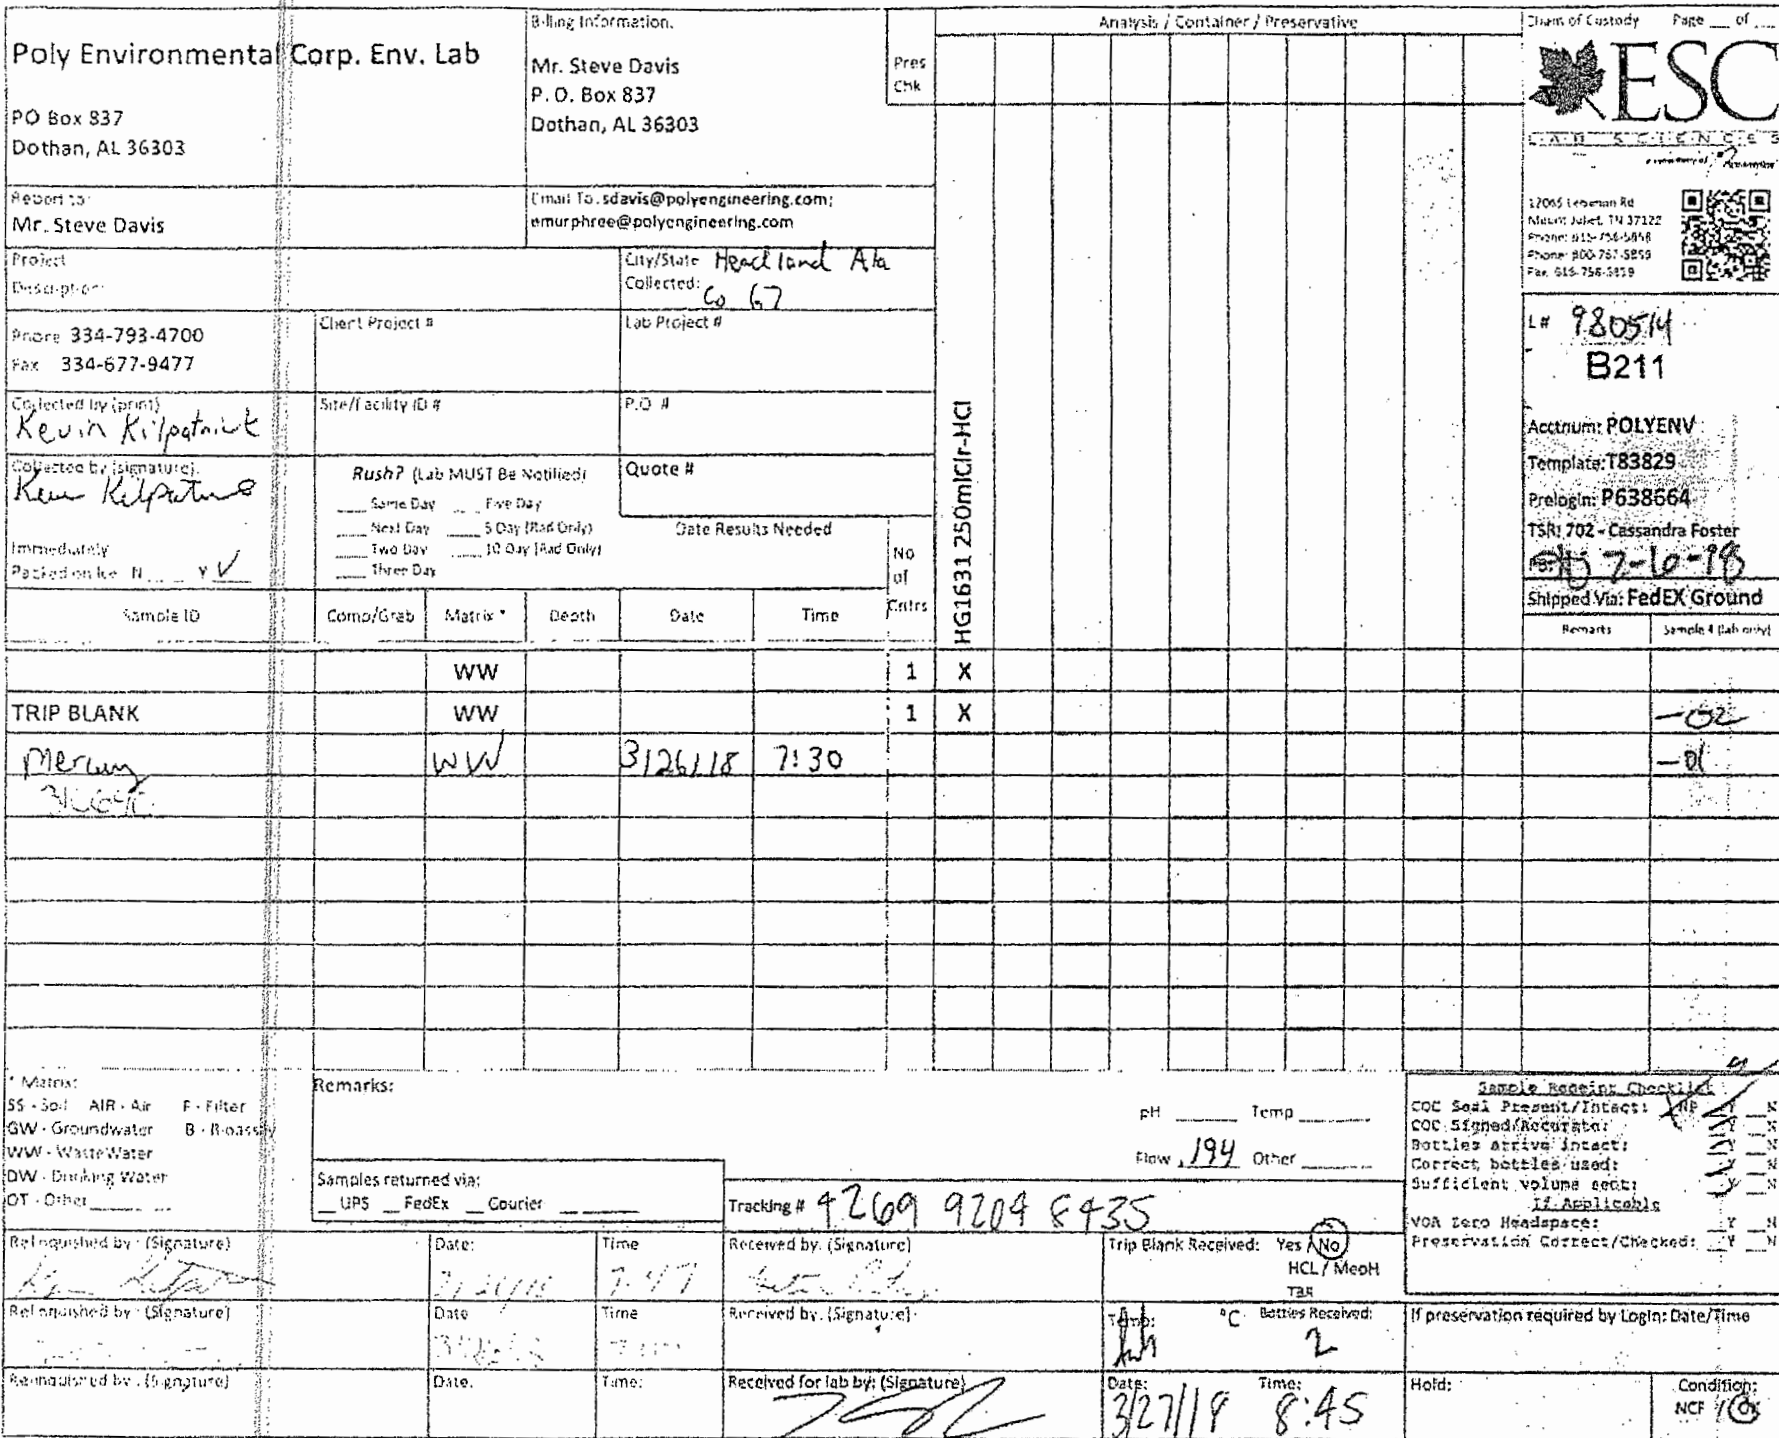 Poly Environmental Corp. Env. Lab
PO Box 837
Dothan, AL 36303
Billing Information:
Mr. Steve Davis
P. O. Box 837
Dothan, AL 36303
Pres
Chk
Analysis / Container / Preservative
Chain of Custody Page ___ of ___
ESC
LAB SCIENCES
12065 Lebanon Rd
Mount Juliet, TN 37122
Phone: 615-758-5858
Phone: 800-767-5859
Fax: 615-758-5859
Report to:
Mr. Steve Davis
Email To: sdavis@polyengineering.com;
emurphree@polyengineering.com
Project
Description:
City/State Headland Ala
Collected: Co 67
Phone 334-793-4700
Fax 334-677-9477
Client Project #
Lab Project #
L# 980514
B211
Collected by (print)
Kevin Kilpatrick
Site/Facility ID #
P.O. #
Acctnum: POLYENV
Template: T83829
Prelogin: P638664
TSR: 702 - Cassandra Foster
PB:
Shipped Via: FedEX Ground
Collected by (signature):
Rush? (Lab MUST Be Notified)
___ Same Day ___ Five Day
___ Next Day ___ 5 Day (Rad Only)
___ Two Day ___ 10 Day (Rad Only)
___ Three Day
Quote #
Date Results Needed
Immediately
Packed on Ice N ___ Y ✓
No
of
Cntrs
HG1631 250mlClr-HCl
Sample ID Comp/Grab Matrix * Depth Date Time
Remarks Sample # (lab only)
WW 1 X
TRIP BLANK WW 1 X -02
Mercury WW 3/26/18 7:30 -01
* Matrix:
SS - Soil AIR - Air F - Filter
GW - Groundwater B - Bioassay
WW - WasteWater
DW - Drinking Water
OT - Other
Remarks:
pH ___ Temp ___
Flow .194 Other ___
Samples returned via:
__ UPS __ FedEx __ Courier
Tracking # 4269 9204 8435
Sample Receipt Checklist
COC Seal Present/Intact: NP Y N
COC Signed/Accurate: Y N
Bottles arrive intact: Y N
Correct bottles used: Y N
Sufficient volume sent: Y N
If Applicable
VOA Zero Headspace: Y N
Preservation Correct/Checked: Y N
Relinquished by : (Signature) Date: Time Received by: (Signature)
7:47
Trip Blank Received: Yes / No
HCL / MeoH
TBR
Relinquished by : (Signature) Date Time Received by: (Signature)
Temp: °C Bottles Received:
2
If preservation required by Login: Date/Time
Relinquished by : (Signature) Date: Time: Received for lab by: (Signature)
Date: 3/27/18 Time: 8:45
Hold:
Condition:
NCF / OK